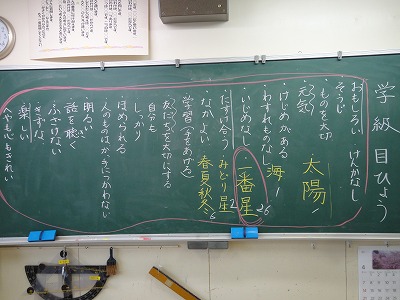 学級目ひょう
おもしろい けんかなし
そうじ
・ものを大切
・元気
太陽
・けじめがある
・わすれものなし
海 1
・いじめない
一番星 26
・たすけ合う
みどり星 2
・なかよい
春夏秋冬 6
学習(手をあげる)
・友だちを大切にする
自分も
しっかり
・ほめられる
・人のものはかってにつかわない
・明るい
・話を聴く
・ふざけない
・きずな
・楽しい
・へやも心もきれい